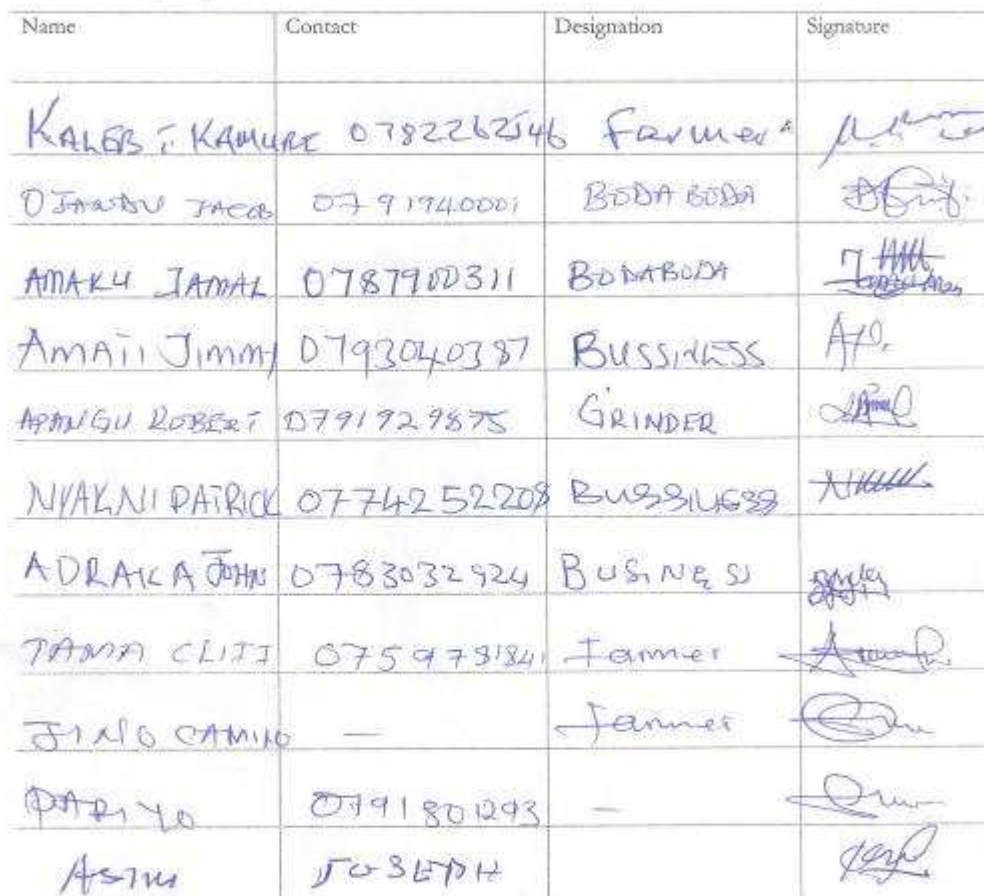 Name Contact Designation Signature
KALEB T KAMURE 0782262546 Farmer
OJANDU JACOB 0791940001 BODA BODA
AMAKU JAMAL 0787900311 BODABODA
AMATI JIMMY 0793040387 BUSSINESS
APANGU ROBERT 0791929875 GRINDER
NYAKNI PATRICK 0774252208 BUSSINESS
ADRAKA JOHN 0783032924 BUSINESS
TAMA 0759781841 Farmer
JINO CAMINO — Farmer
PARIYO 0791801293 —
JOSEPH